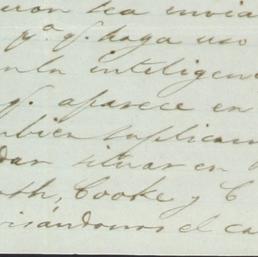 sea envia
pª q. haga uso
en la inteligen
q. aparece en
bien suplicam
dar situar en
th, Cooke y C
visándonos el ca